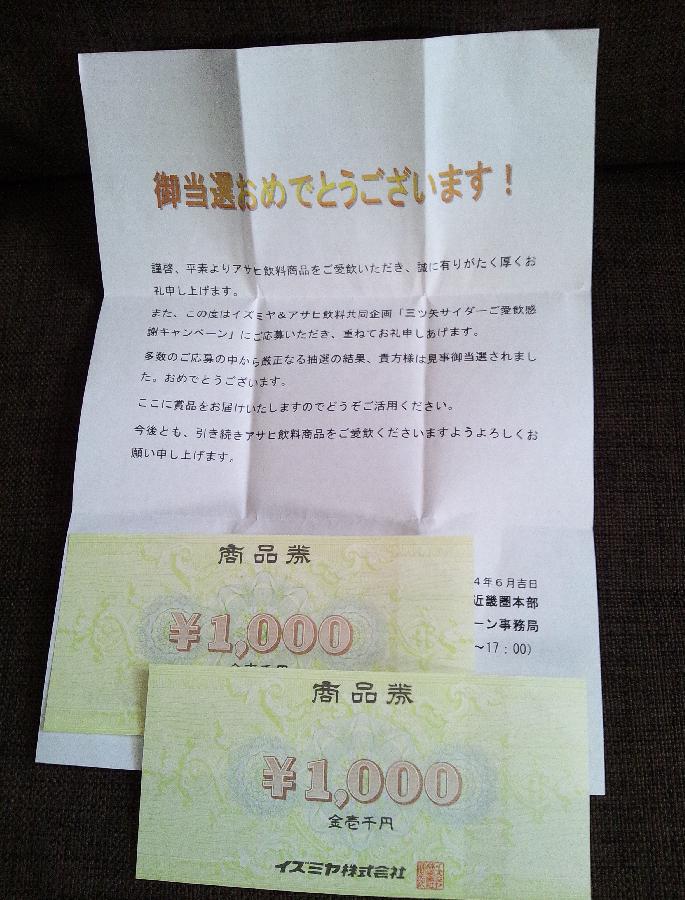 御当選おめでとうございます！
謹啓、平素よりアサヒ飲料商品をご愛飲いただき、誠に有りがたく厚くお
礼申し上げます。
また、この度はイズミヤ＆アサヒ飲料共同企画「三ツ矢サイダーご愛飲感
謝キャンペーン」にご応募いただき、重ねてお礼申しあげます。
多数のご応募の中から厳正なる抽選の結果、貴方様は見事御当選されまし
た。おめでとうございます。
ここに賞品をお届けいたしますのでどうぞご活用ください。
今後とも、引き続きアサヒ飲料商品をご愛飲くださいますようよろしくお
願い申し上げます。
4年6月吉日
近畿圏本部
ーン事務局
～17：00）
商品券
¥1,000
金壱千円
商品券
¥1,000
金壱千円
イズミヤ株式会社